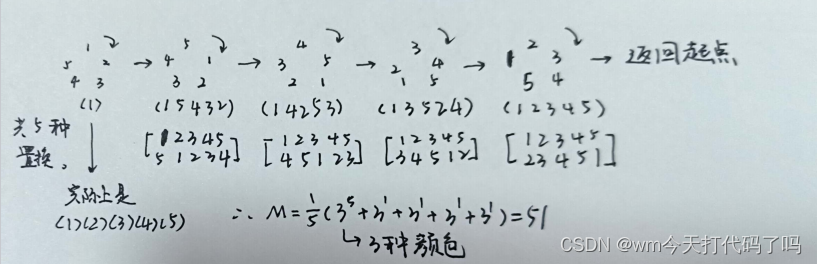 1
5 2
4 3
→
5 1
4 2
3
→
4
3 5
2 1
→
3
2 4
1 5
→
2
1 3
5 4
→ 返回起点
(1) (15432) (14253) (13524) (12345)
共5种
置换。
[12345
51234]
[12345
45123]
[12345
34512]
[12345
23451]
实际上是
(1)(2)(3)(4)(5)
∴ M=1/5(3^5+3^1+3^1+3^1+3^1)=51
↳3种颜色
CSDN @wm今天打代码了吗